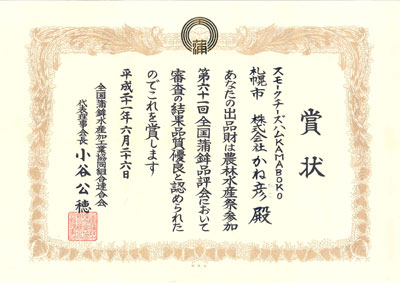 蒲
賞状
スモークチーズinKAMABOKO
札幌市 株式会社かね彦殿
あなたの出品財は農林水産祭参加
第六十一回全国蒲鉾品評会において
審査の結果品質優良と認められた
のでこれを賞します
平成二十一年六月二十六日
全国蒲鉾水産加工業協同組合連合会
代表理事会長 小谷公穂